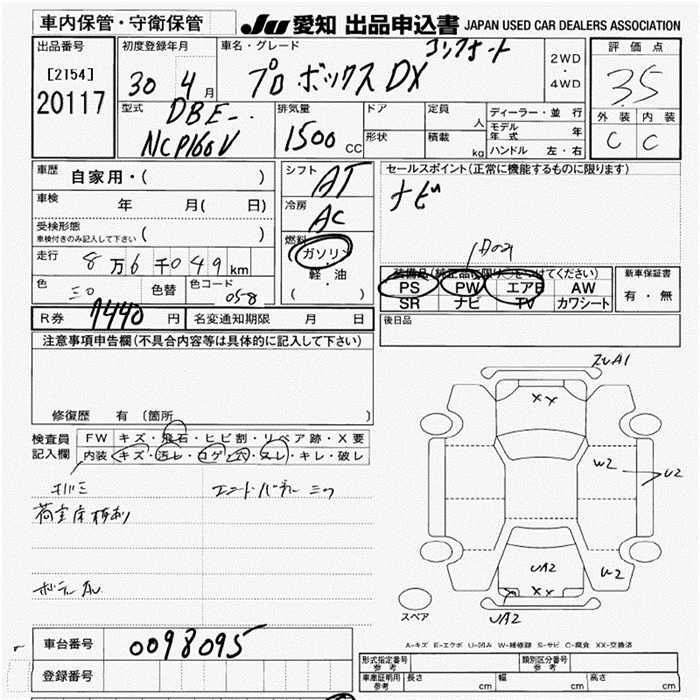 車内保管・守衛保管
JU 愛知 出品申込書 JAPAN USED CAR DEALERS ASSOCIATION
出品番号
[2154]
20117
初度登録年月
30 4 月
車名・グレード
コンフォート
プロボックス DX
2WD
・
4WD
評価点
3.5
外装 内装
C C
型式
DBE-
NCP160V
排気量
1500 CC
ドア
形状
定員 人
積載 kg
ディーラー・並行
モデル年式 年
ハンドル 左・右
車歴 自家用・( )
車検 年 月( 日)
受検形態
車検付きのみ記入して下さい ( )
走行 8万6千049km
色 色替 色コード 058
シフト AT
冷房 AC
燃料 ガソリン
・
軽油
( )
セールスポイント(正常に機能するものに限ります)
ナビ
装備品(純正品に限り○をつけてください)
PS PW エアB AW
SR ナビ TV カワシート
新車保証書
有・無
R券 7440 円 名変通知期限 月 日
後日品
注意事項申告欄(不具合内容等は具体的に記入して下さい)
修復歴 有 〔箇所 〕
検査員記入欄
FW キズ・飛石・ヒビ割・リペア跡・X要
内装 キズ・汚レ・コゲ・穴・スレ・キレ・破レ
XX
W2
U2
W2
UA2
XX
UA2
スペア
A=キズ E=エクボ U=凹み W=補修跡 S=サビ C=腐食 XX=交換済
車台番号 0098095
登録番号
形式指定番号 参考
類別区分番号 参考
車庫証明用 参考 長さ cm 幅 cm 高さ cm